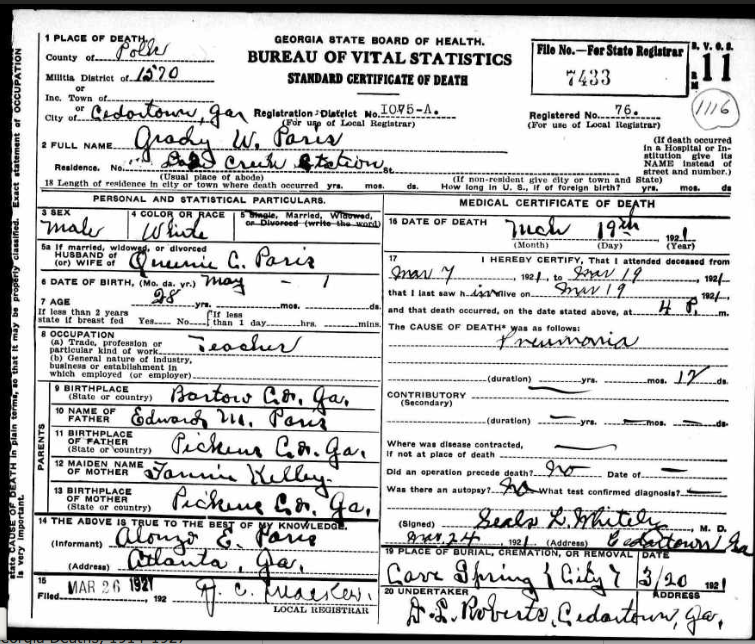 GEORGIA STATE BOARD OF HEALTH.
BUREAU OF VITAL STATISTICS
STANDARD CERTIFICATE OF DEATH
File No.—For State Registrar
7433
B. V. O. S.
11
1116
1 PLACE OF DEATH
County of Polk
Militia District of 1570
or
Inc. Town of
or
City of Cedartown, Ga
Registration District No. 1075-A.
(For use of Local Registrar)
Registered No. 76.
(For use of Local Registrar)
2 FULL NAME Grady W. Paris
(If death occurred in a Hospital or Institution give its NAME instead of street and number.)
Residence. No. Creek Station St.
(Usual place of abode)
(If non-resident give city or town and State)
18 Length of residence in city or town where death occurred yrs. mos. ds. How long in U. S., if of foreign birth? yrs. mos. ds
PERSONAL AND STATISTICAL PARTICULARS.
3 SEX
Male
4 COLOR OR RACE
White
5 Single, Married, Widowed, or Divorced (write the word)
5a If married, widowed, or divorced
HUSBAND OF
(or) WIFE of Queenie C. Paris
6 DATE OF BIRTH, (Mo. da. yr.) May - 1
7 AGE 28 yrs. mos. ds.
If less than 2 years state if breast fed Yes No
If less than 1 day, hrs. mins.
8 OCCUPATION
(a) Trade, profession or particular kind of work Teacher
(b) General nature of industry, business or establishment in which employed (or employer)
PARENTS
9 BIRTHPLACE
(State or country) Bartow Co. Ga.
10 NAME OF FATHER Edward M. Paris
11 BIRTHPLACE OF FATHER
(State or country) Pickens Co. Ga.
12 MAIDEN NAME OF MOTHER Fannie Kelley
13 BIRTHPLACE OF MOTHER
(State or country) Pickens Co. Ga.
14 THE ABOVE IS TRUE TO THE BEST OF MY KNOWLEDGE.
(Informant) Alonzo E. Paris
(Address) Atlanta, Ga.
15
Filed MAR 26 1921, 192
LOCAL REGISTRAR
MEDICAL CERTIFICATE OF DEATH
16 DATE OF DEATH Mch 19th 1921
(Month) (Day) (Year)
17 I HEREBY CERTIFY, That I attended deceased from
Mar 7, 1921, to Mar 19 1921
that I last saw him alive on Mar 19 1921,
and that death occurred, on the date stated above, at 4 P. m.
The CAUSE OF DEATH* was as follows:
Pneumonia
(duration) yrs. mos. 12 ds.
CONTRIBUTORY
(Secondary)
(duration) yrs. mos. ds.
Where was disease contracted,
if not at place of death
Did an operation precede death? No Date of
Was there an autopsy? No What test confirmed diagnosis?
(Signed) Seals L. Whitely M. D.
Mar 24, 1921 (Address) Cedartown Ga
19 PLACE OF BURIAL, CREMATION, OR REMOVAL
Cave Spring (City)
DATE
3/20 1921
20 UNDERTAKER
D. L. Roberts, Cedartown, Ga.
ADDRESS
state CAUSE OF DEATH in plain terms, so that it may be properly classified. Exact statement of OCCUPATION
is very important.